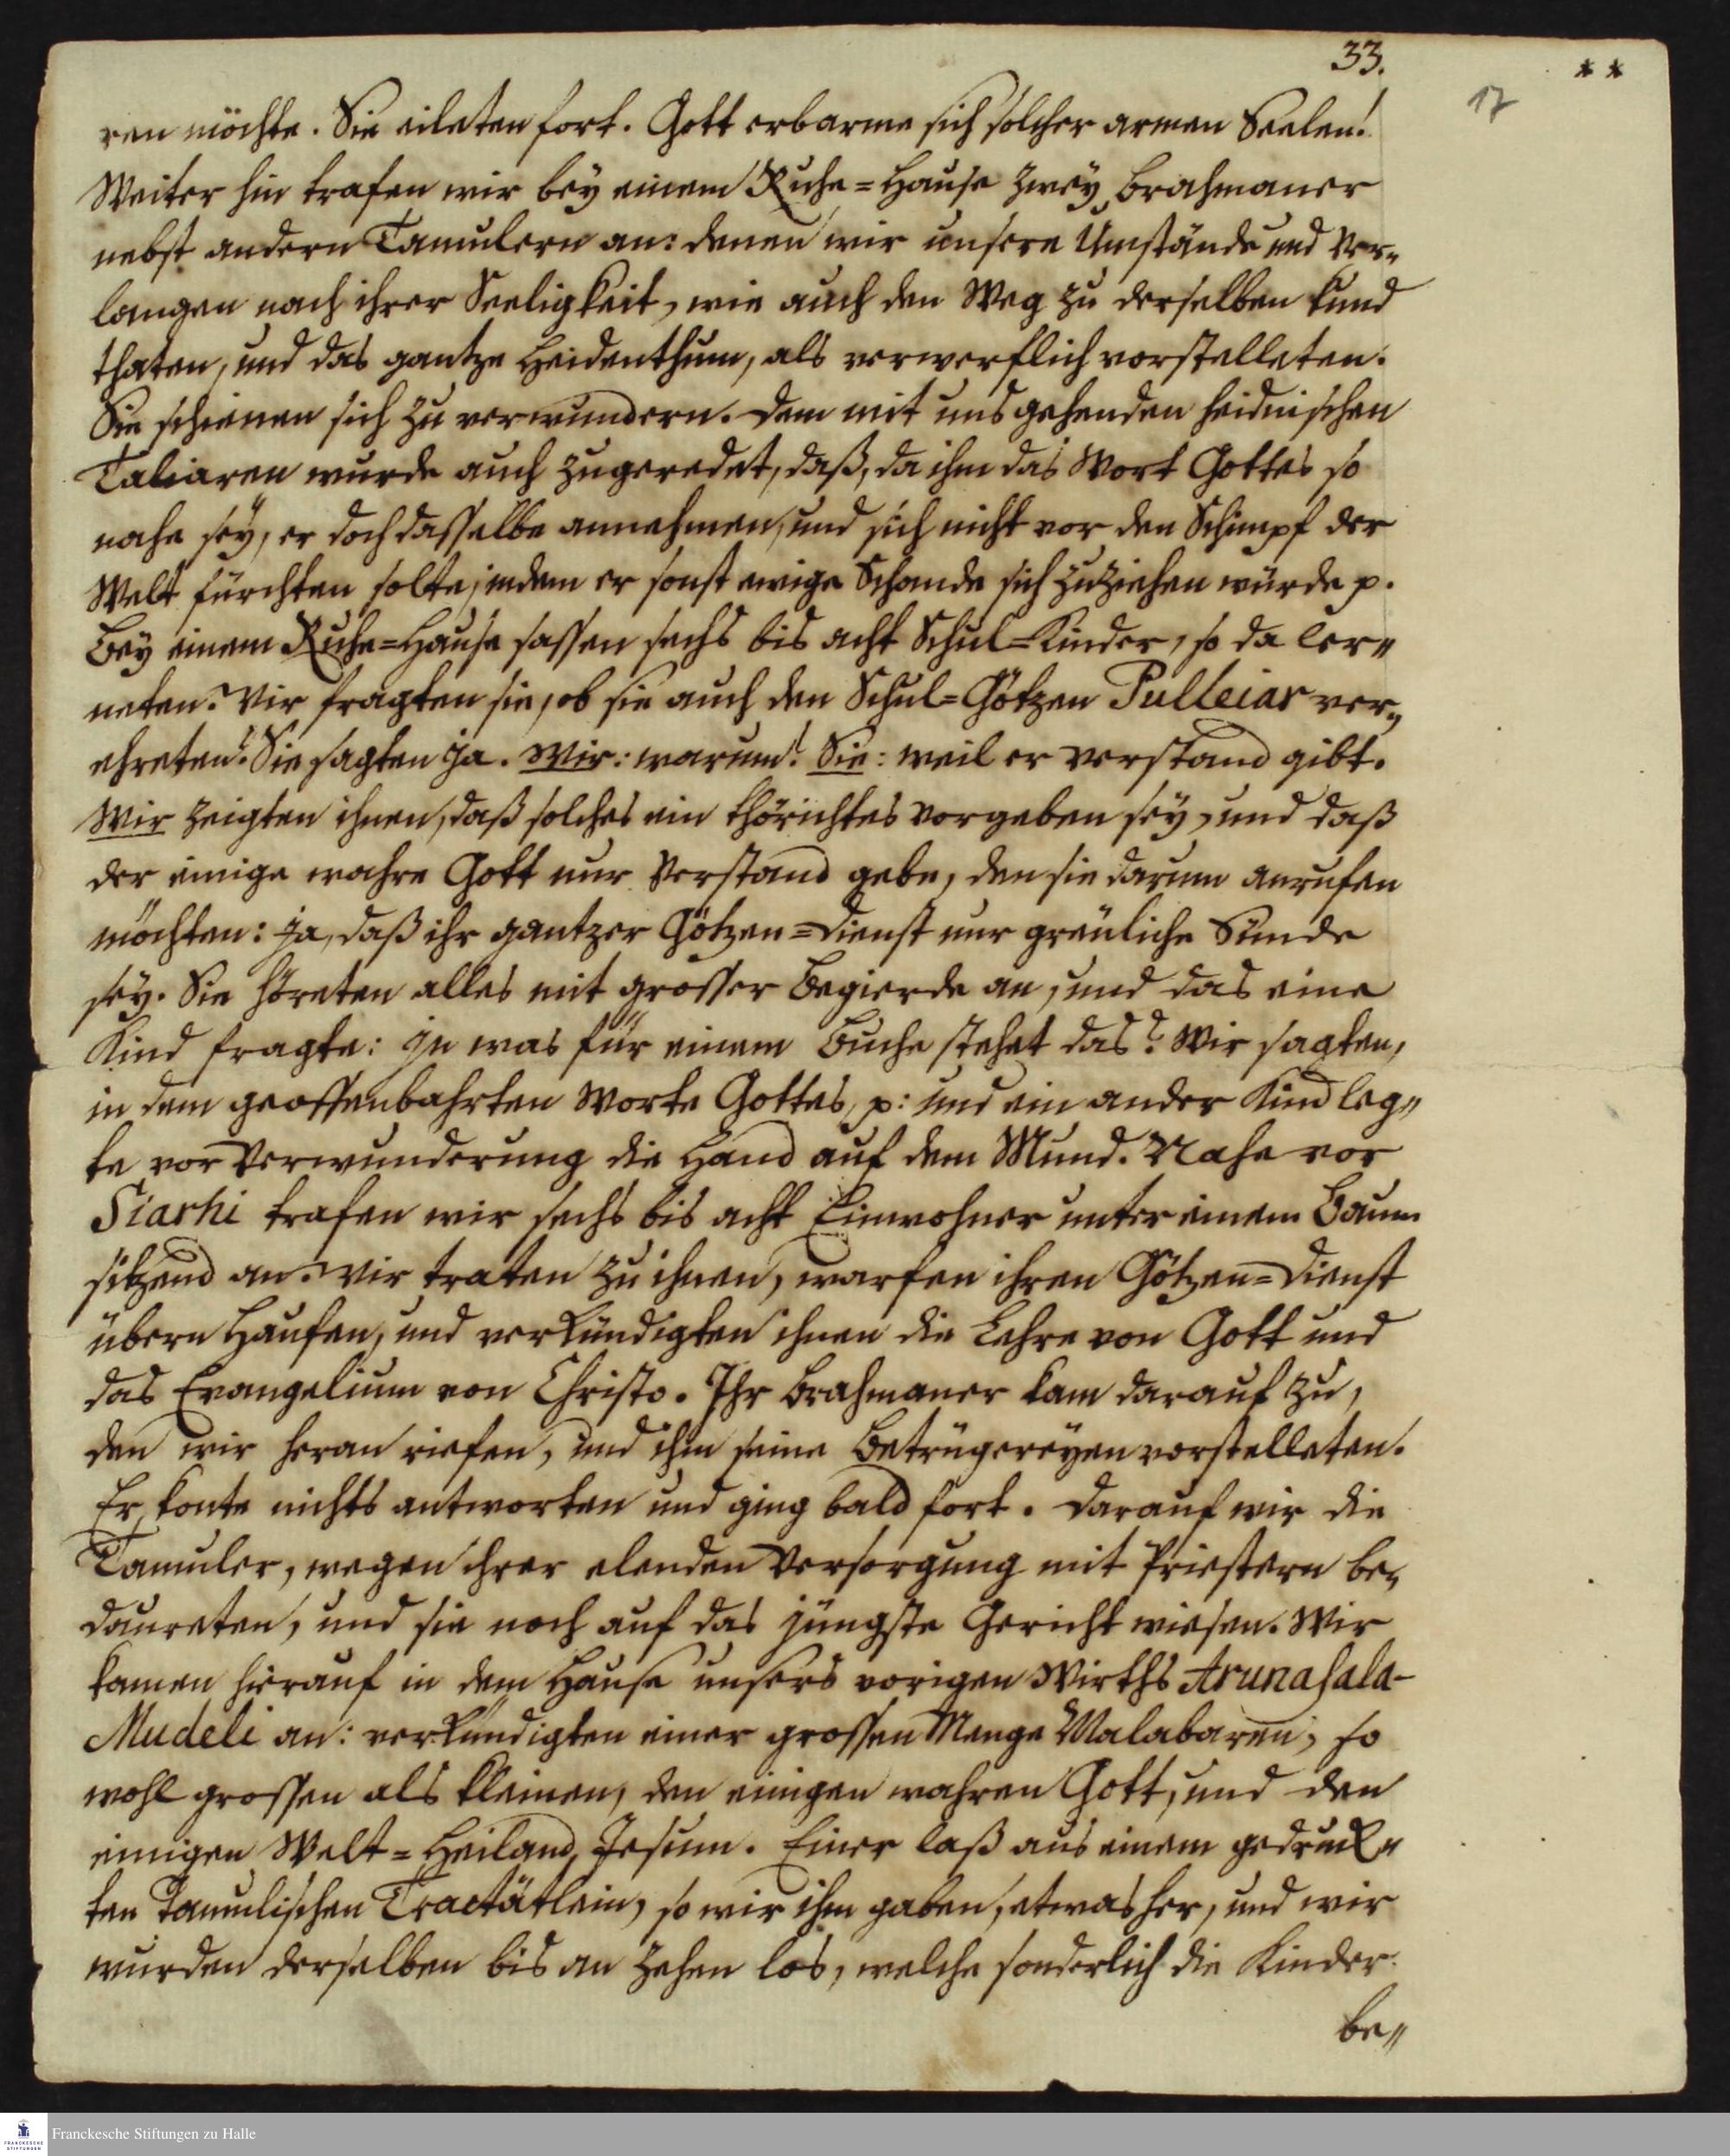 33.
* *
17
ren möchte. Sie eileten fort. Gott erbarme sich solcher armen Seelen!
Weiter hin trafen wir bey einem Ruhe=Hause zwey Brahmaner
nebst andern Tamulern an: denen wir unsere Umstände und Ver„
langen nach ihrer Seeligkeit, wie auch den Weg zu derselben kund
thaten, und das gantze Heidenthum, als verwerflich vorstelleten.
Sie schienen sich zu verwundern. Dem mit uns gehenden heidnischen
Taliaren wurde auch zugeredet, daß, da ihm das Wort Gottes so
nahe sey, er doch dasselbe annehmen, und sich nicht vor den Schimpf der
Welt fürchten solte; indem er sonst ewige Schande sich zuziehen würde p.
Bey einem Ruhe=Hause sassen sechs bis acht Schul=Kinder, so da ler„
neten. Wir fragten sie, ob sie auch den Schul=Götzen Pulleiar ver„
ehreten? Sie sagten ja. Wir: warum? Sie: weil er Verstand gibt.
Wir zeigten ihnen, daß solches ein thörichtes Vorgeben sey, und daß
der einige wahre Gott nur Verstand gebe, den sie darum anrufen
möchten: ja, daß ihr gantzer Götzen=Dienst nur greuliche Sünde
sey. Sie höreten alles mit grosser Begierde an, und das eine
Kind fragte: in was für einem Buche stehet das? Wir sagten,
in dem geoffenbahrten Worte Gottes, p: und ein ander Kind leg„
te vor Verwunderung die Hand auf dem Mund. Nahe vor
Siarhi trafen wir sechs bis acht Einwohner unter einem Baum
sitzend an. Wir traten zu ihnen, warfen ihren Götzen=Dienst
übern Haufen, und verkündigten ihnen die Lehre von Gott und
das Evangelium von Christo. Ihr Brahmaner kam darauf zu,
den wir heran riefen, und ihm seine Betrügereyen vorstelleten.
Er konte nichts antworten und ging bald fort. Darauf wir die
Tamuler, wegen ihrer elenden Versorgung mit Priestern be„
daureten, und sie noch auf das jüngste Gericht wiesen. Wir
kamen hierauf in dem Hause unsers vorigen Wirths Arunasala-
Mudeli an: verkündigten einer grossen Menge Malabaren, so
wohl grossen als kleinen, den einigen wahren Gott, und den
einigen Welt=Heiland, Jesum. Einer laß aus einem gedruck„
ten Tamulischen Tractätlein, so wir ihm gaben, etwas her, und wir
wurden derselben bis an zehen los, welche sonderlich die Kinder
be„
Franckesche Stiftungen zu Halle
FRANCKESCHE
STIFTUNGEN